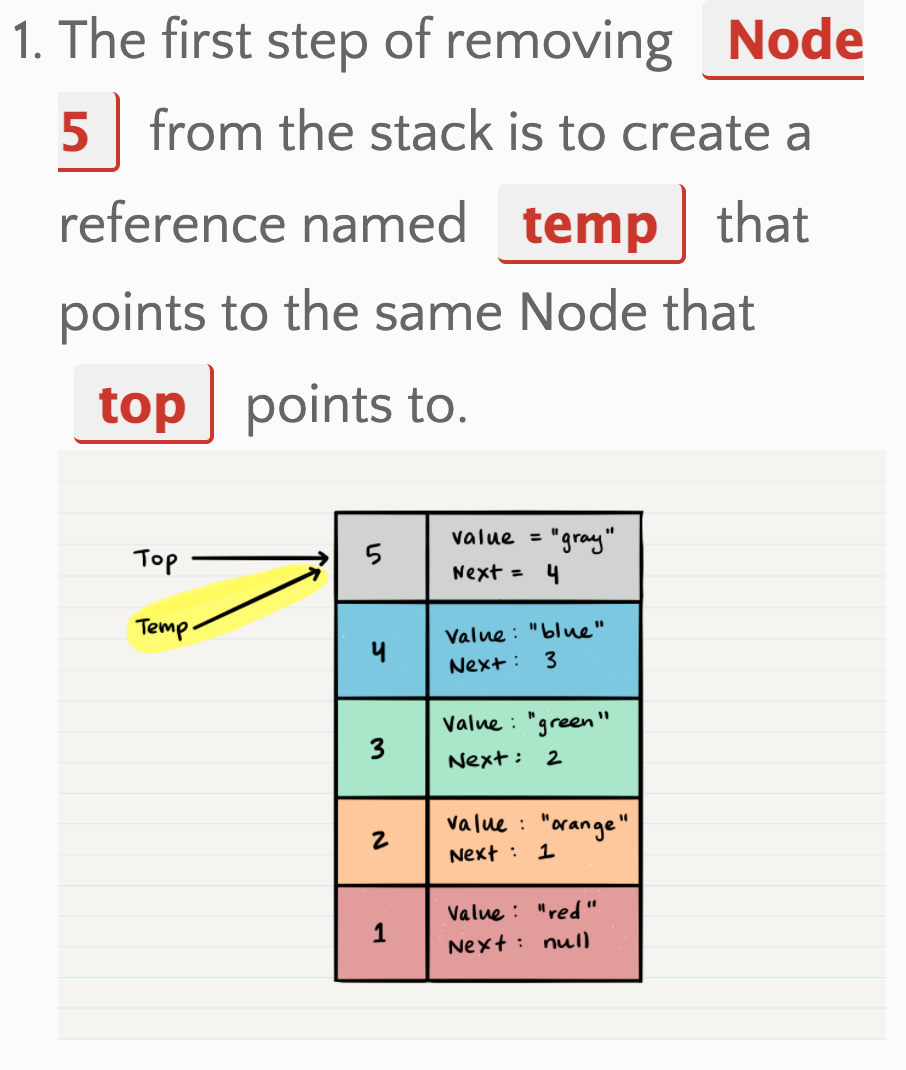 1. The first step of removing Node
5 from the stack is to create a
reference named temp that
points to the same Node that
top points to.
Top
Temp
5
value = "gray"
Next = 4
4
Value : "blue"
Next : 3
3
Value : "green"
Next : 2
2
Value : "orange"
Next : 1
1
Value : "red"
Next : null